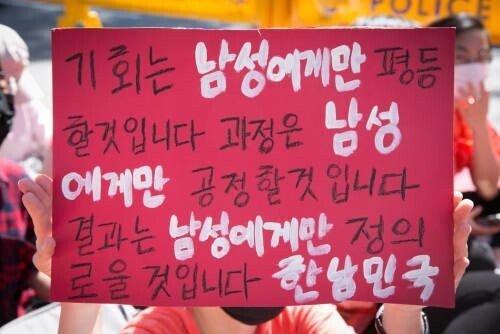 POLICE
기회는 남성에게만 평등
할것입니다 과정은 남성
에게만 공정할것입니다
결과는 남성에게만 정의
로울것입니다 한남민국